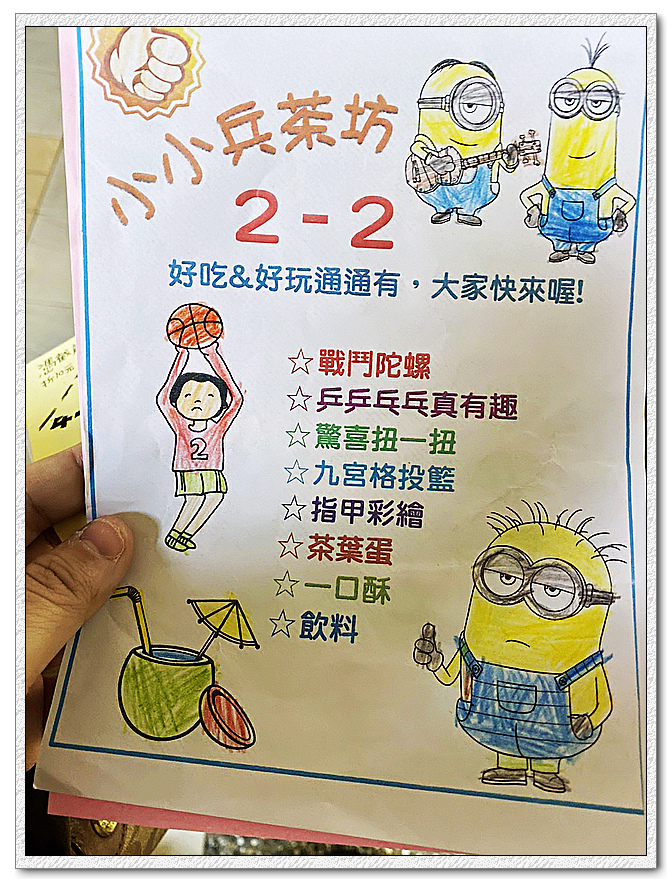 小小兵茶坊
2-2
好吃&好玩通通有,大家快來喔!
☆戰鬥陀螺
☆乒乒乓乓真有趣
☆驚喜扭一扭
☆九宮格投籃
☆指甲彩繪
☆茶葉蛋
☆一口酥
☆飲料
2